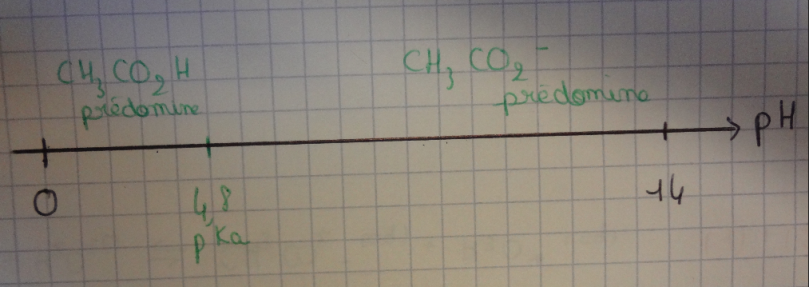 CH₃CO₂H
prédomine
CH₃ CO₂⁻
prédomine
pH
0
4,8
pKa
14